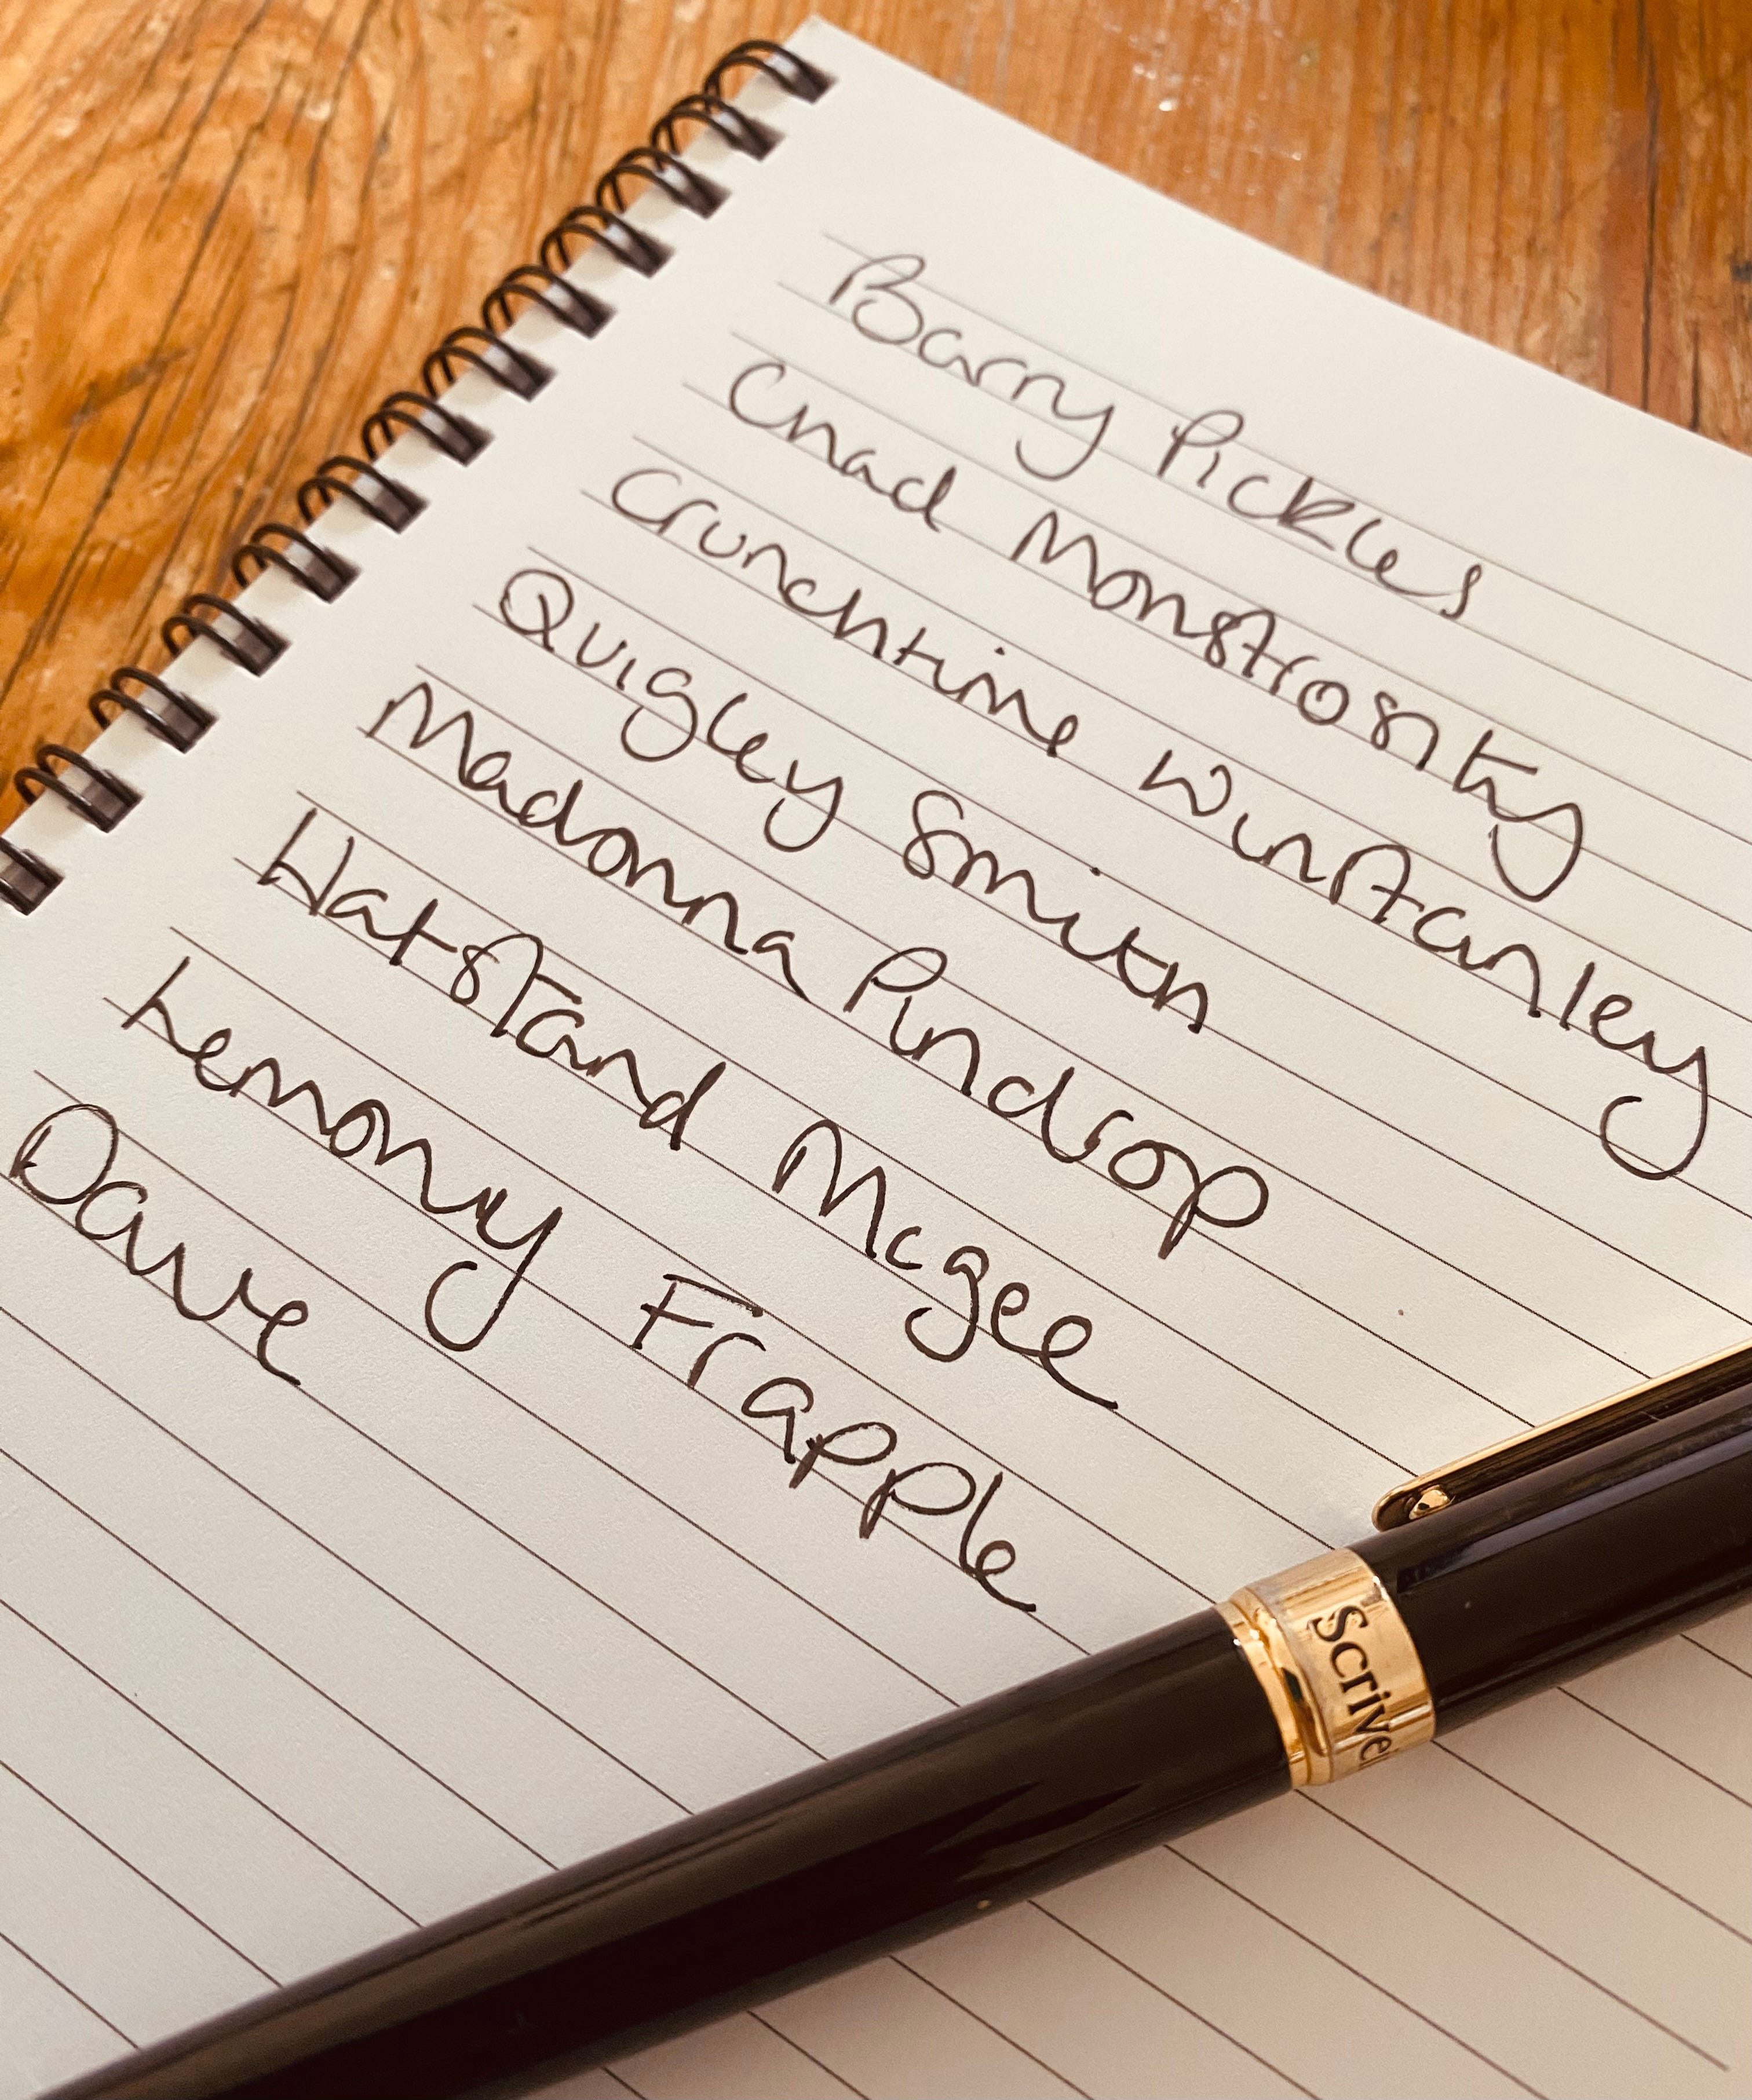 Barry Pickles
Chad Monstrosity
Crunchtime Winstanley
Quigley Smith
Madonna Pindrop
Hatstand Mcgee
Lemony Frapple
Dave
Scrive